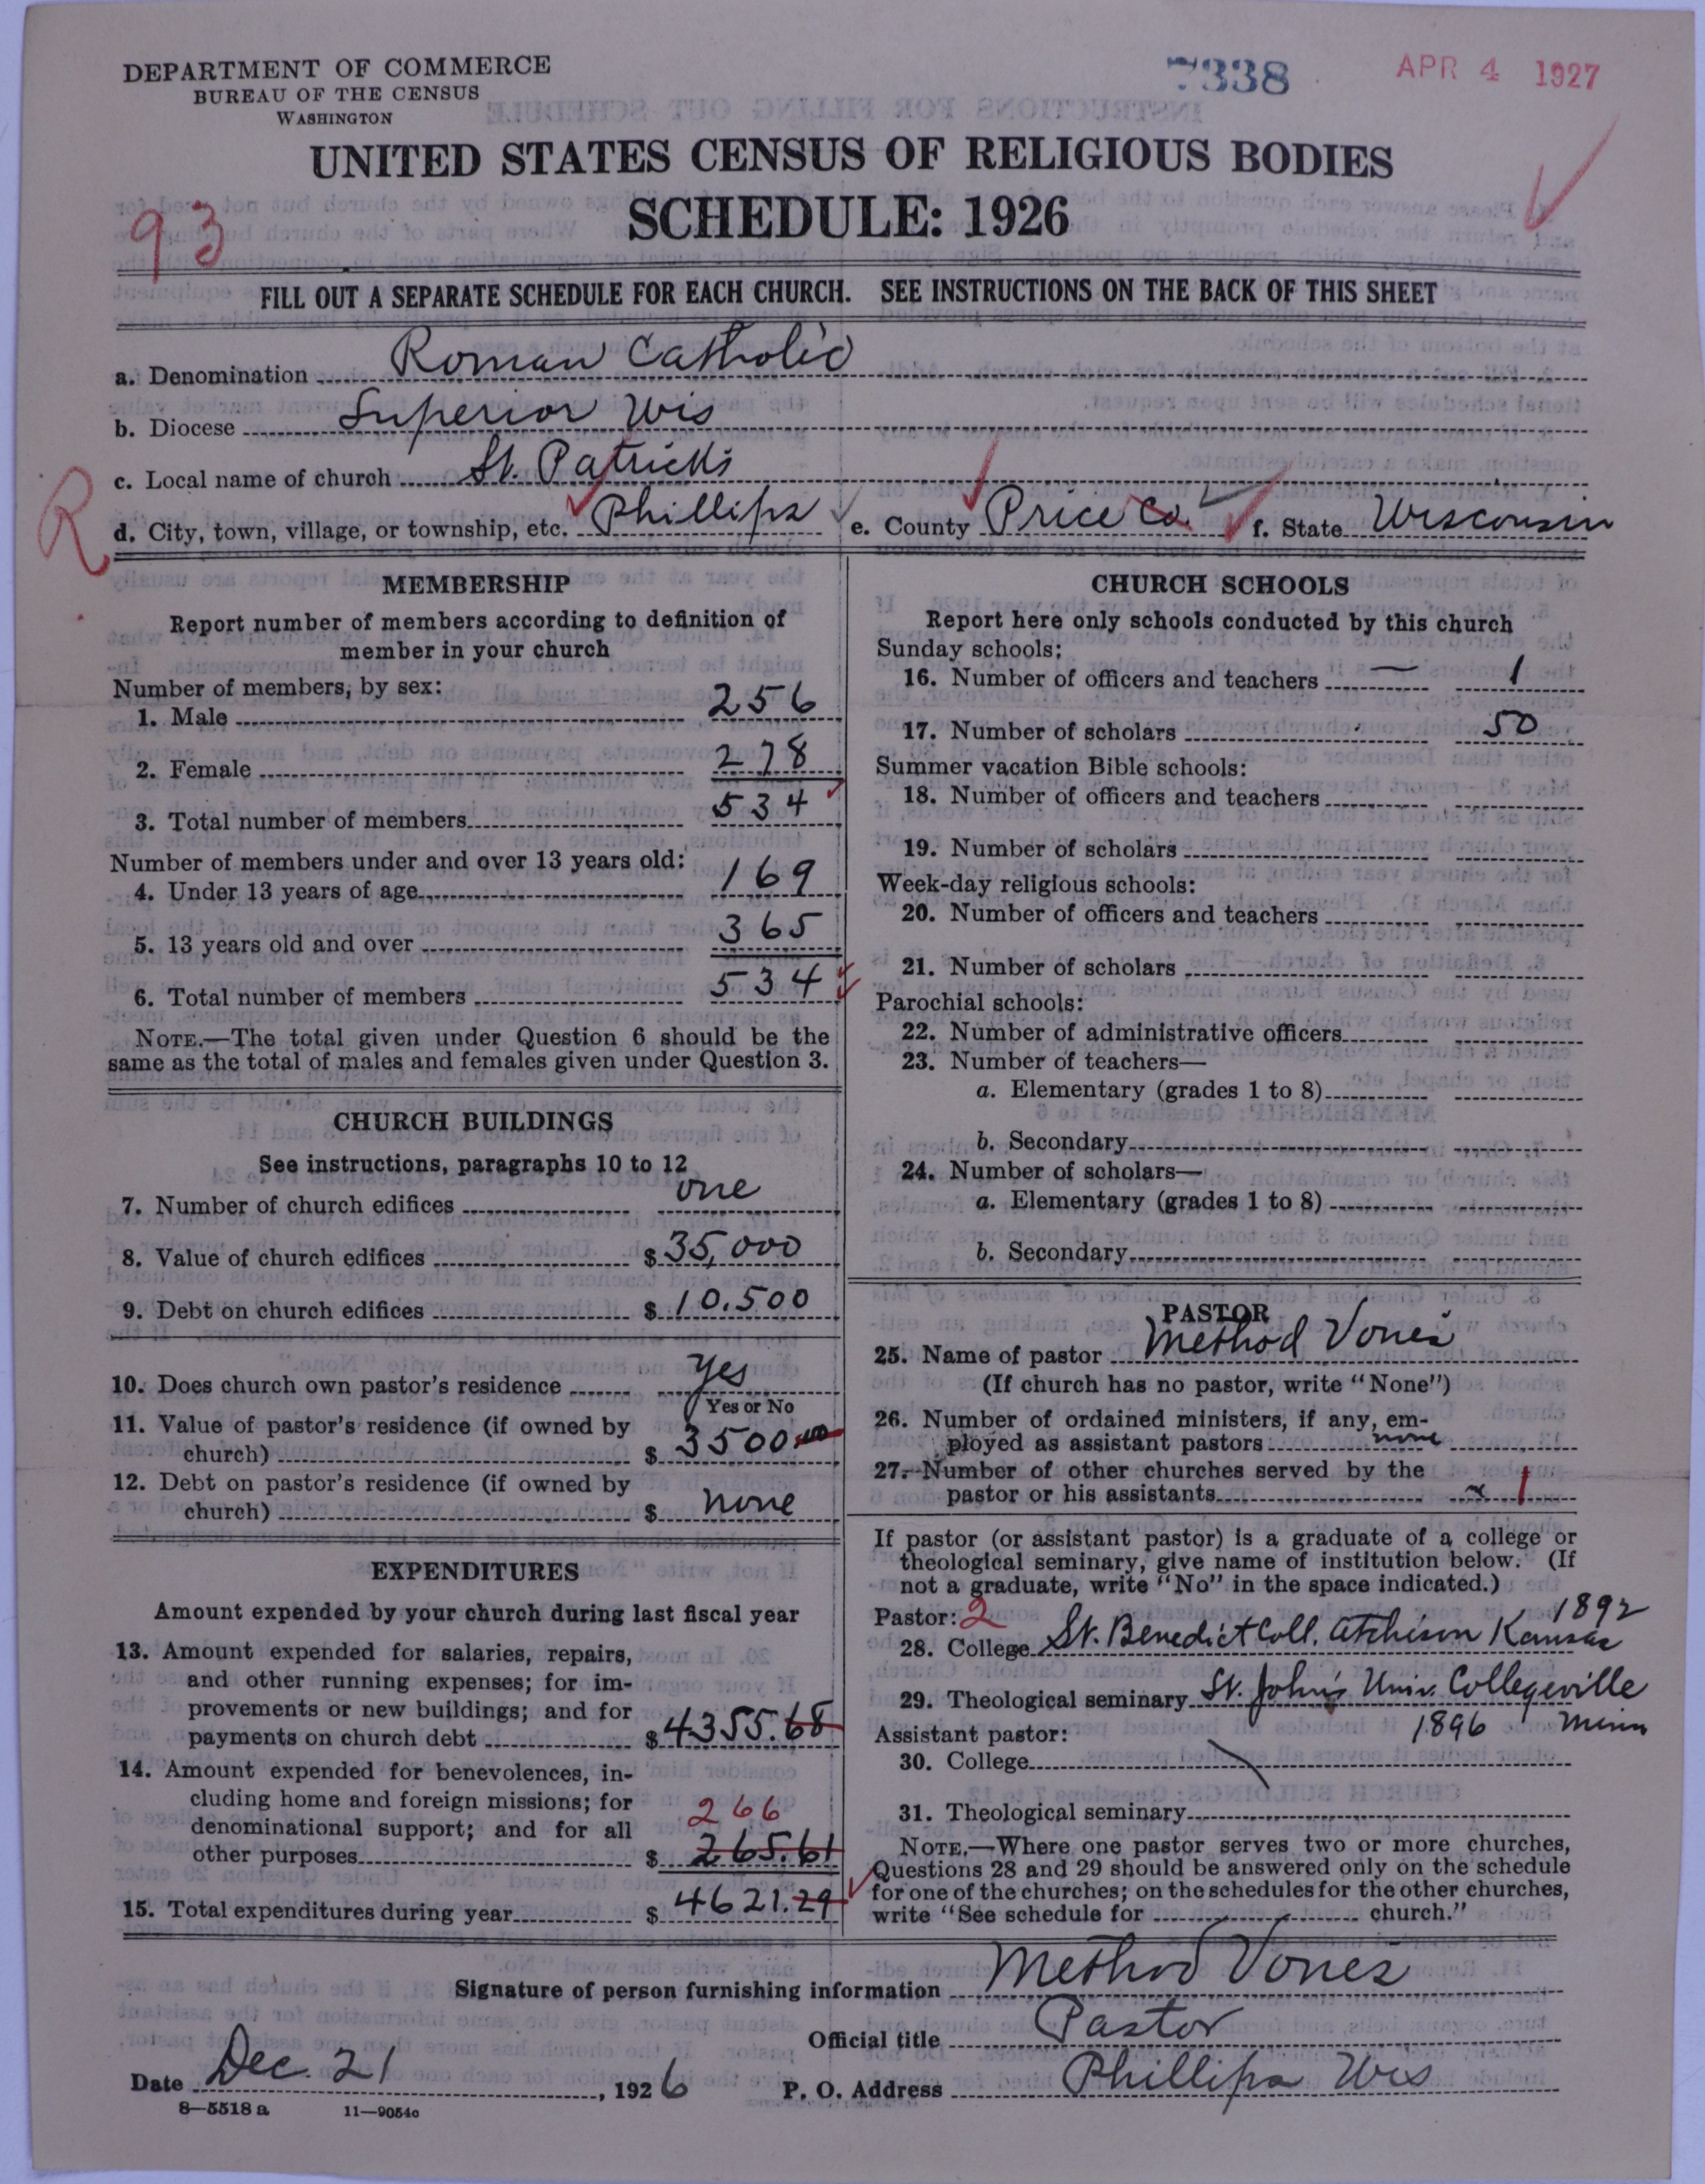 DEPARTMENT OF COMMERCE
BUREAU OF THE CENSUS
WASHINGTON
7338
APR 4 1927
UNITED STATES CENSUS OF RELIGIOUS BODIES
SCHEDULE: 1926
93
FILL OUT A SEPARATE SCHEDULE FOR EACH CHURCH. SEE INSTRUCTIONS ON THE BACK OF THIS SHEET
a. Denomination Roman Catholic
b. Diocese Superior Wis
c. Local name of church St. Patricks
R
d. City, town, village, or township, etc. Phillips e. County Price Co. f. State Wisconsin
MEMBERSHIP
Report number of members according to definition of
member in your church
Number of members, by sex:
1. Male 256
2. Female 278
3. Total number of members 534
Number of members under and over 13 years old:
4. Under 13 years of age 169
5. 13 years old and over 365
6. Total number of members 534
NOTE.—The total given under Question 6 should be the
same as the total of males and females given under Question 3.
CHURCH BUILDINGS
See instructions, paragraphs 10 to 12
7. Number of church edifices one
8. Value of church edifices $ 35,000
9. Debt on church edifices $ 10.500
10. Does church own pastor's residence Yes
Yes or No
11. Value of pastor's residence (if owned by
church) $ 3500.00
12. Debt on pastor's residence (if owned by
church) $ none
EXPENDITURES
Amount expended by your church during last fiscal year
13. Amount expended for salaries, repairs,
and other running expenses; for im-
provements or new buildings; and for
payments on church debt $ 4355.68
14. Amount expended for benevolences, in-
cluding home and foreign missions; for
denominational support; and for all
266
other purposes $ 265.61
15. Total expenditures during year $ 4621.29
CHURCH SCHOOLS
Report here only schools conducted by this church
Sunday schools:
16. Number of officers and teachers — 1
17. Number of scholars 50
Summer vacation Bible schools:
18. Number of officers and teachers
19. Number of scholars
Week-day religious schools:
20. Number of officers and teachers
21. Number of scholars
Parochial schools:
22. Number of administrative officers
23. Number of teachers—
a. Elementary (grades 1 to 8)
b. Secondary
24. Number of scholars—
a. Elementary (grades 1 to 8)
b. Secondary
PASTOR
25. Name of pastor Method Vones
(If church has no pastor, write "None")
26. Number of ordained ministers, if any, em-
ployed as assistant pastors none
27. Number of other churches served by the
pastor or his assistants 1
If pastor (or assistant pastor) is a graduate of a college or
theological seminary, give name of institution below. (If
not a graduate, write "No" in the space indicated.)
Pastor: 2 1892
28. College St. Benedict Coll. Atchison Kansas
29. Theological seminary St. John's Univ. Collegeville
Assistant pastor: 1896 Minn
30. College
31. Theological seminary
NOTE.—Where one pastor serves two or more churches,
Questions 28 and 29 should be answered only on the schedule
for one of the churches; on the schedules for the other churches,
write "See schedule for church."
Signature of person furnishing information Method Vones
Official title Pastor
Date Dec. 21, 1926 P. O. Address Phillips Wis
8—5518 a 11—9054c